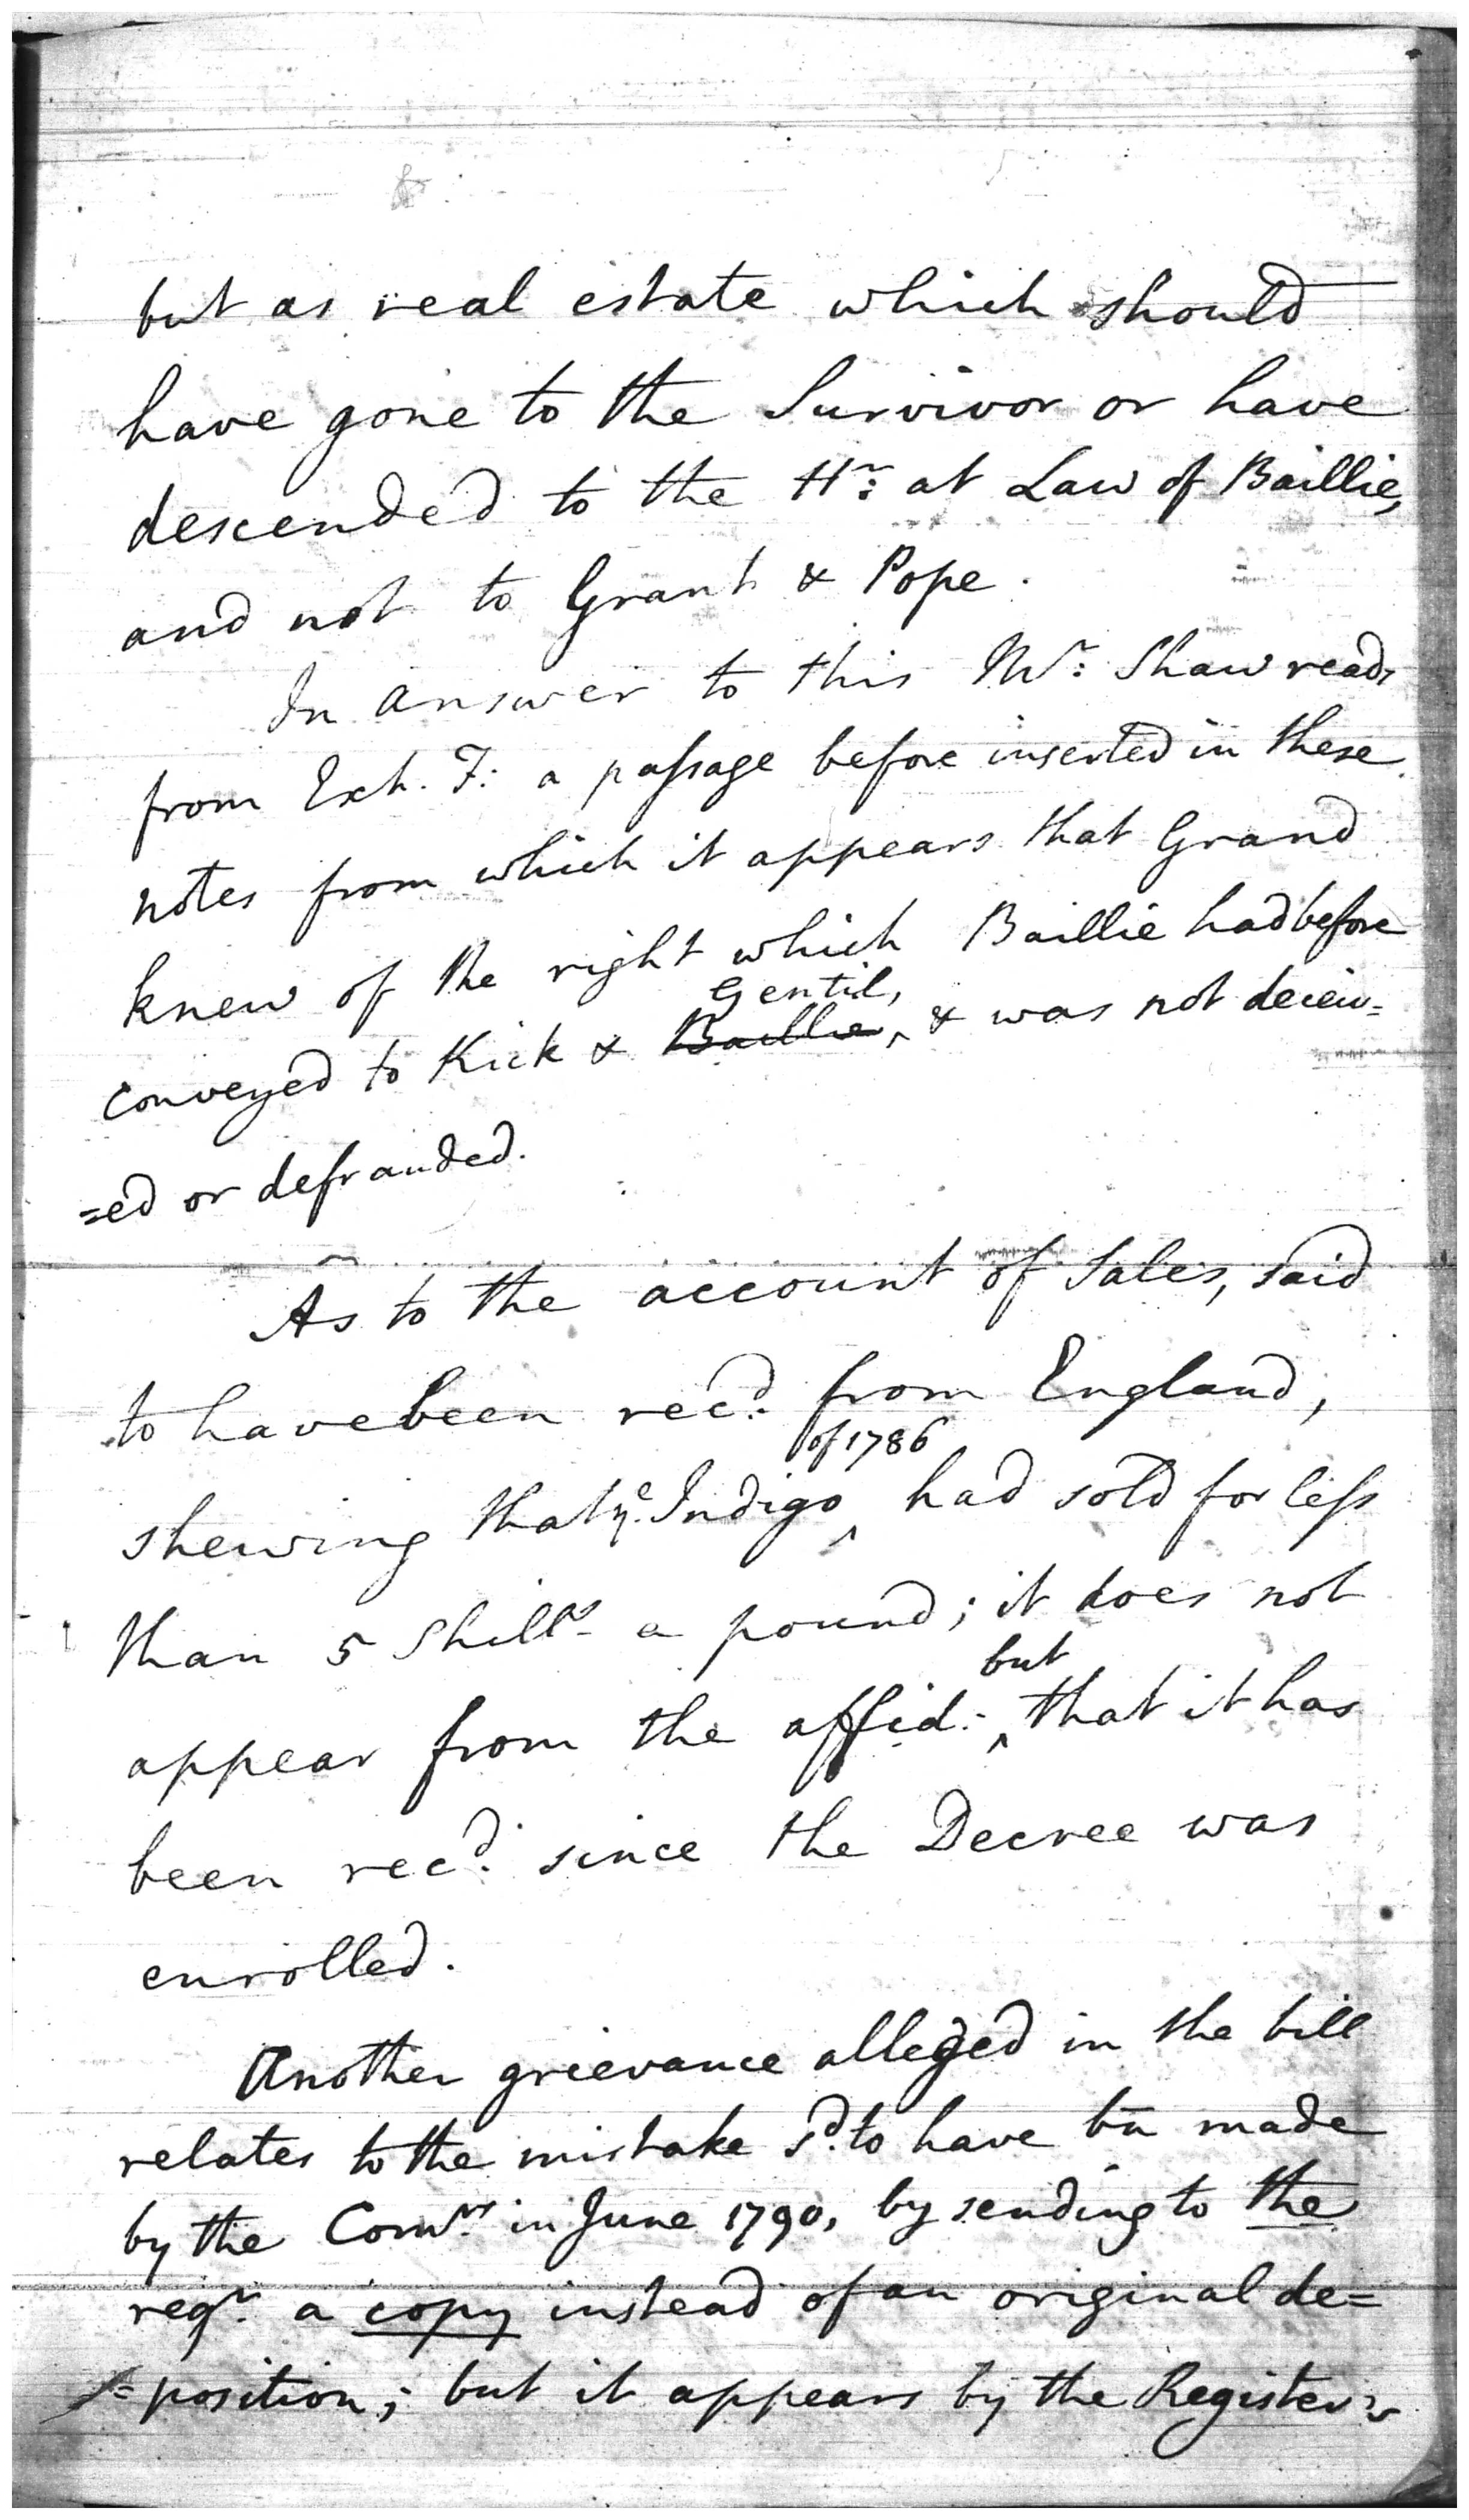 but as real estate which should
have gone to the Survivor or have
descended to the Hr: at Law of Baillie,
and not to Grant & Pope.
In answer to this Mr: Shaw reads
from Exh. F: a passage before inserted in these
notes from which it appears that Grand
knew of the right which Baillie had before
Gentil,
conveyed to Kick & Baillie, & was not deceiv=
=ed or defrauded.
As to the account of Sales, said
to have been rec'd. from England,
of 1786
shewing that ye. Indigo ^ had sold for less
than 5 Shills a pound; it does not
but
appear from the affid:- ^ that it has
been rec'd. since the Decree was
enrolled.
Another grievance alleged in the bill
relates to the mistake sd. to have bn made
by the Comrs in June 1790, by sending to the
regr. a copy instead of an original de=
=position; but it appears by the Register's